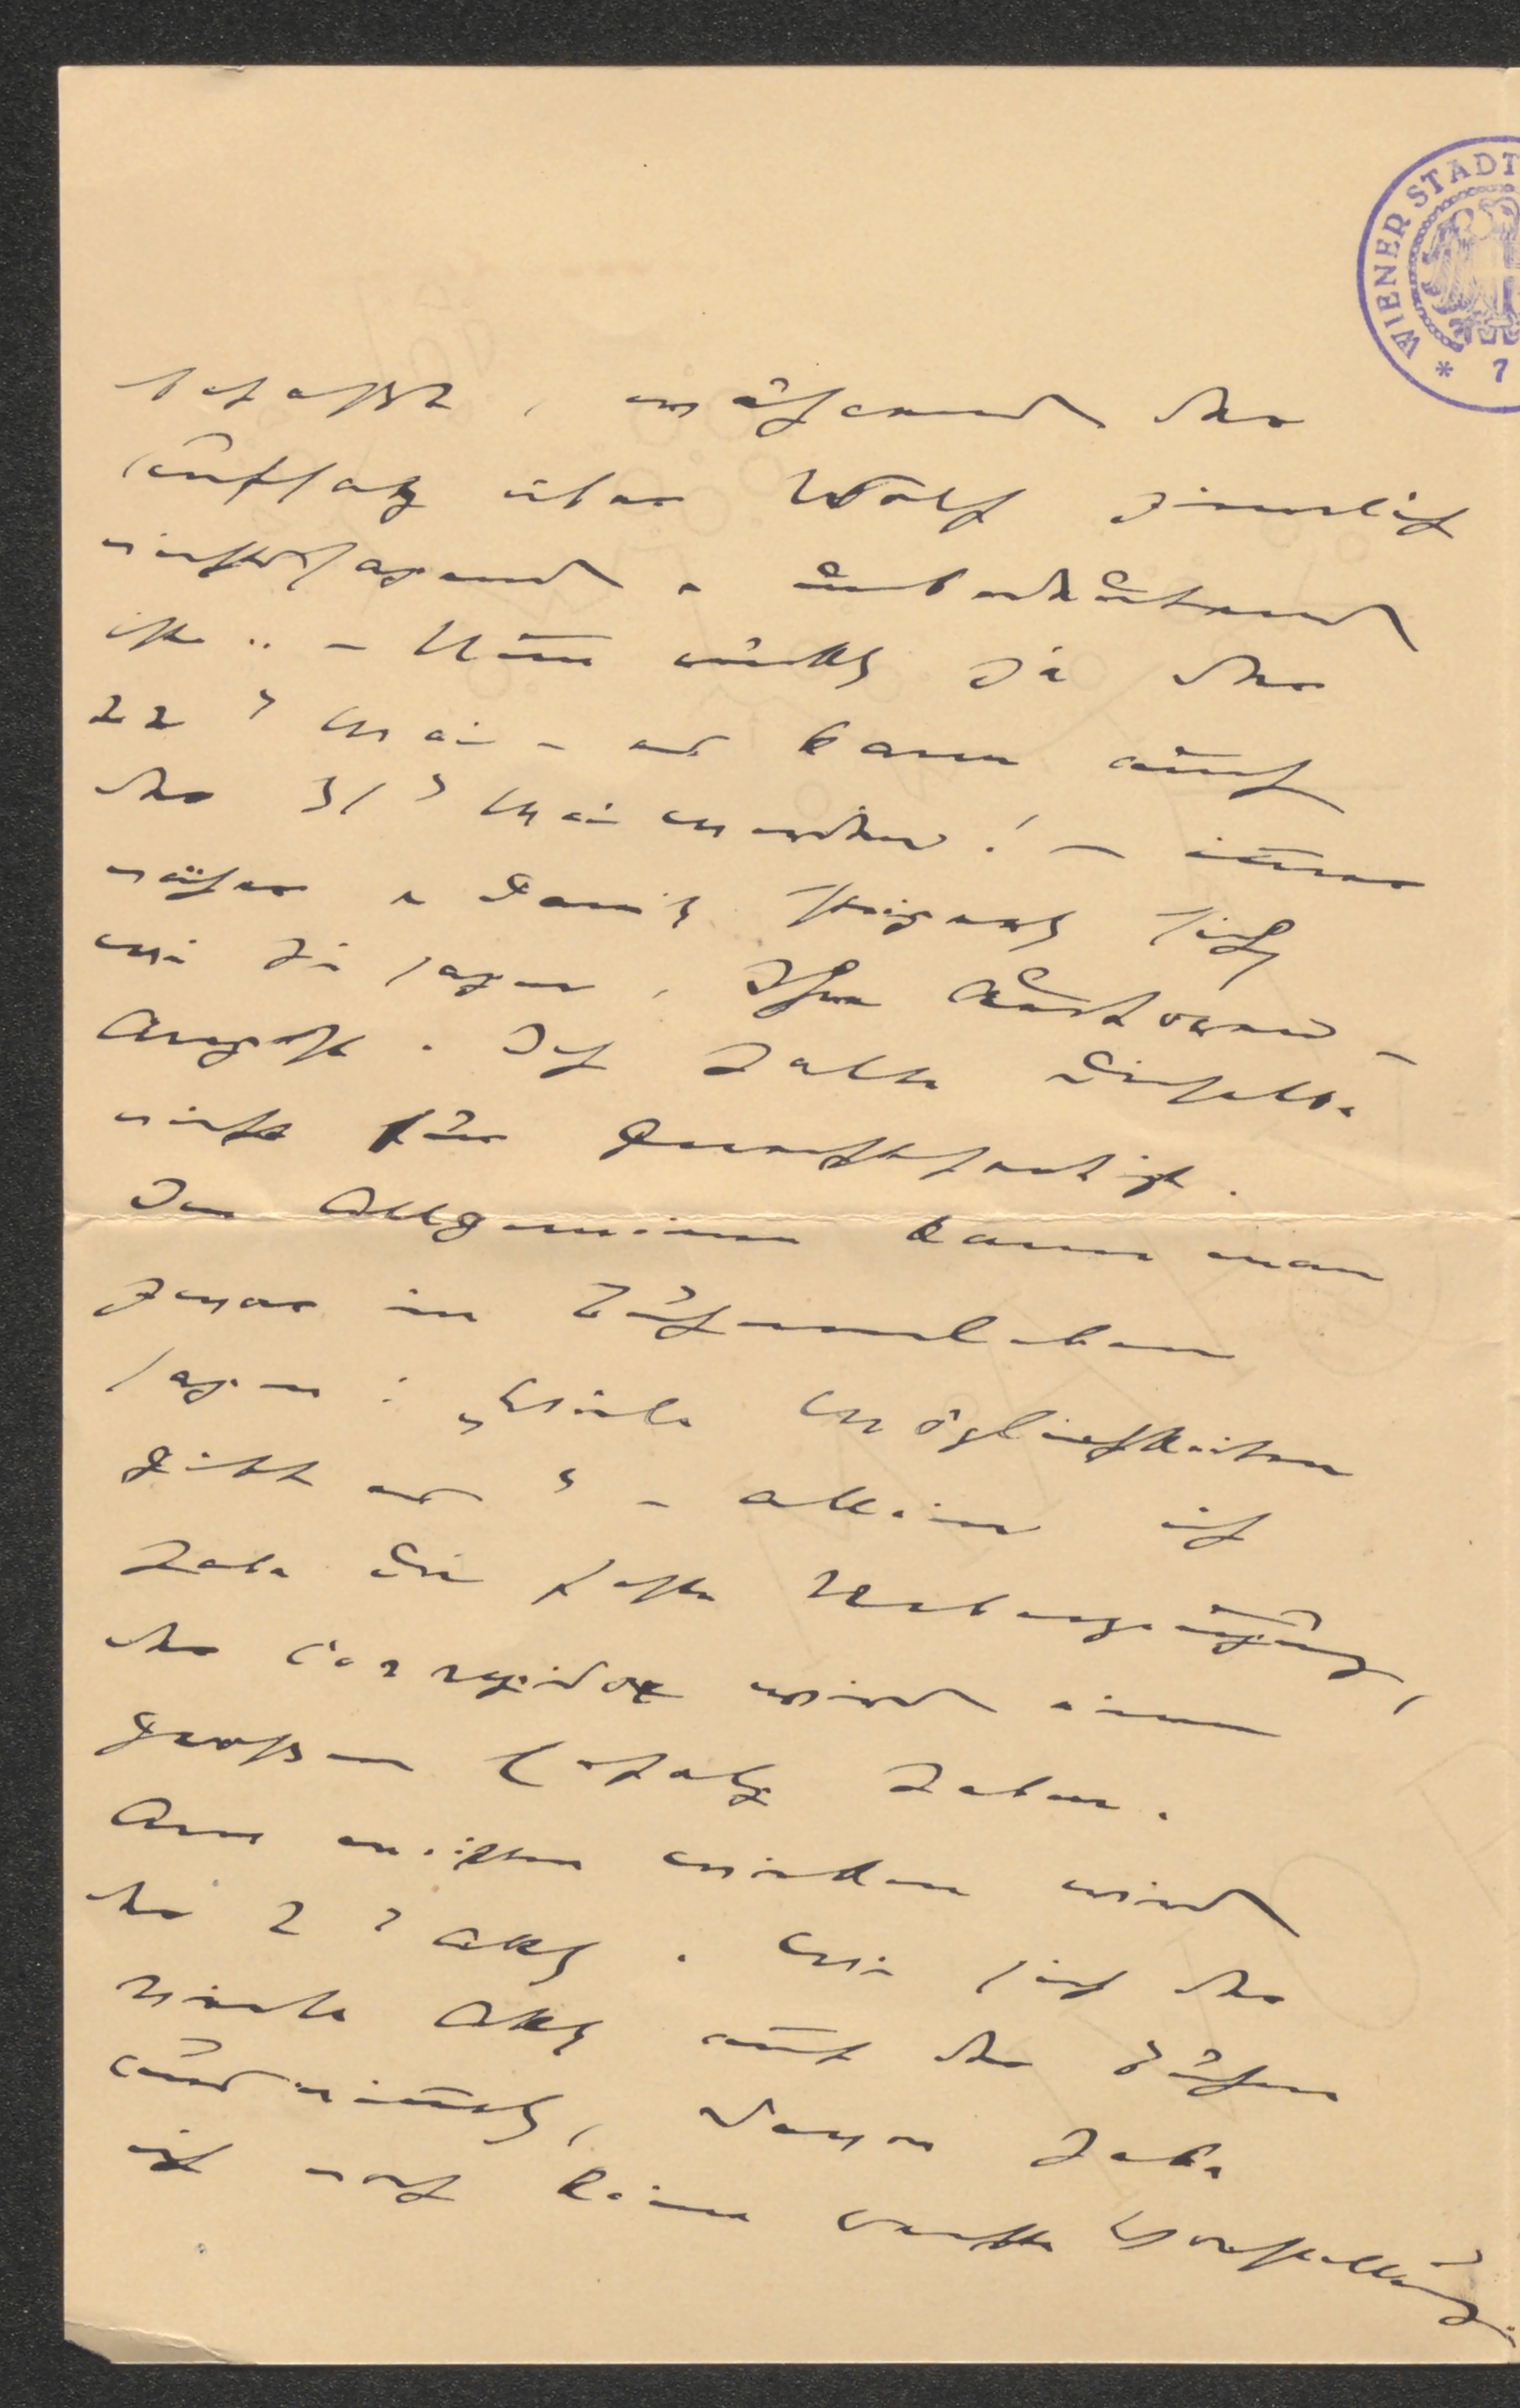 WIENER STADT
* 7
befasst, während der
Aufsatz über Wolf ziemlich
nichtssagend u. unbedeutend
ist.. – Nun rückt ja der
22t Mai – es kann auch
der 31t Mai werden! – immer
näher u. damit steigert sich,
wie Sie sagen, Ihre Autoren –
Angst. Ich halte dieselbe
nicht für gerechtfertigt.
Im Allgemeinen kann man
zwar im Bühnenleben
sagen: „Viele Möglichkeiten
gibt es" – allein ich
habe die feste Ueberzeugung,
der Corregidor wird einen
grossen Erfolg haben.
Am meisten wirken wird
der 2t Akt. Wie sich der
vierte Akt auf der Bühne
ausnimmt, davon habe
ich noch keine rechte Vorstellung.